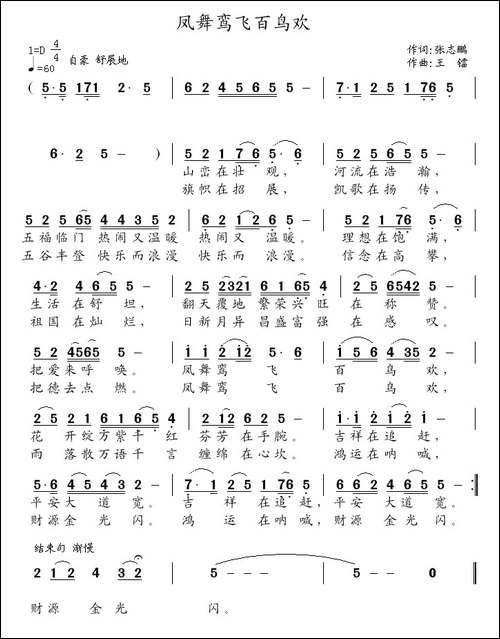 凤舞鸾飞百鸟欢
1=D 4/4
♩=60 自豪 舒展地
作词:张志鹏
作曲:王 镭
( 5·5 171 2·5 | 62 4565 5 – | 7·1 25 176 5 |
6·2 5 – ) | 52 176 5·6 | 52 565 5 – |
山峦在壮 观, 河流在浩 瀚,
旗帜在招 展, 凯歌在扬 传,
52 565 44 352 | 62 126 5 – | 52 176 5·6 |
五福临门 热闹又温暖 热闹又 温暖。 理想在饱 满,
五谷丰登 快乐而浪漫 快乐而 浪漫。 信念在高 攀,
4·2 465 5 – | 25 2321 61 765 | 2·5 6542 5 – |
生活在舒 坦, 翻天覆地 繁荣兴旺 在 称 赞。
祖国在灿 烂, 日新月异 昌盛富强 在 感 叹。
52 4565 5 – | ii 2i2 5·6 | i56 435 2 – |
把爱来呼 唤。 凤舞鸾 飞 百 鸟 欢,
把德去点 燃。 凤舞鸾 飞 百 鸟 欢,
25 21 61 654 | 212 62 5 – | i·i 212 i 2 |
花 开绽方紫千 红 芬芳 在手腕。 吉祥在追 赶,
雨 落散万语千 言 缠绵 在心坎。 鸿运在呐 喊,
5·6 65 454 2 – | 7·1 25 176 5 | 66 2 465 5 – :|
平安大 道 宽。 吉 祥 在追 赶, 平安大 道 宽。
财源金 光 闪。 鸿 运 在呐 喊, 财源金 光 闪。
结束句 渐慢
2 12 4 32 | 5 – – – | 5 – – 0 ‖
财源 金 光 闪。